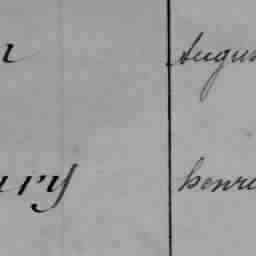 n Augus
ury henri